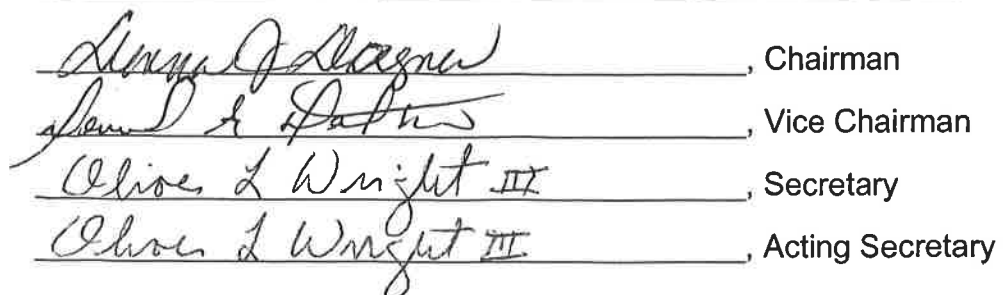 Donna J Wagner, Chairman
, Vice Chairman
Oliver L Wright III, Secretary
Oliver L Wright III, Acting Secretary